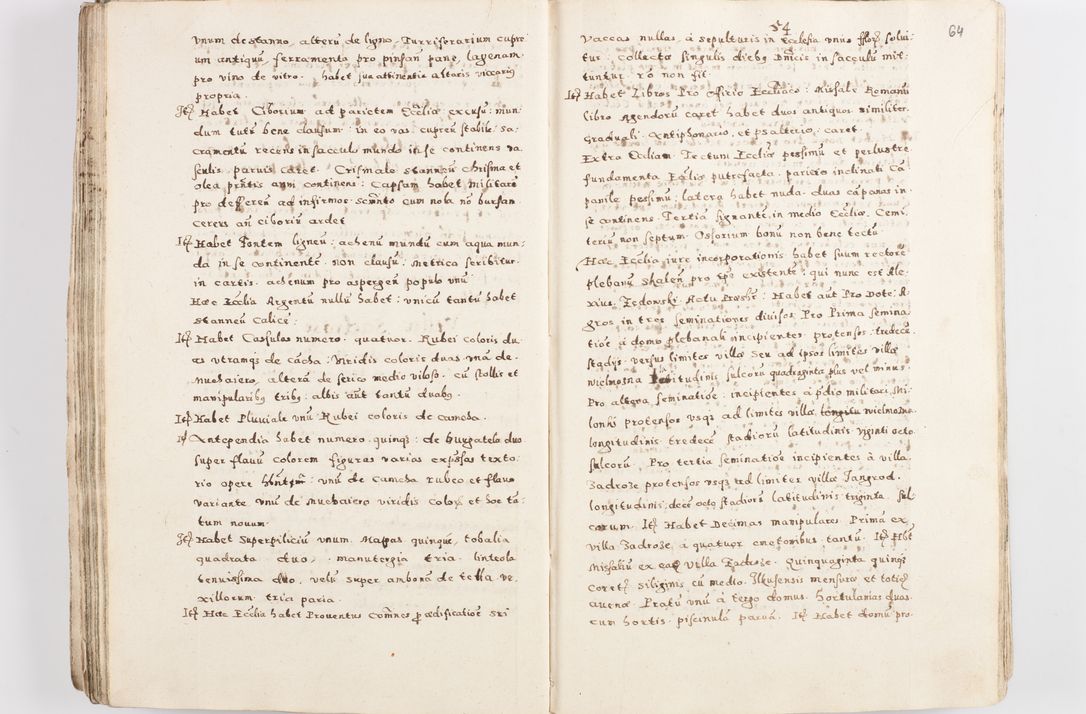 vnum de stanno, alterũ de ligno, Turriforarium cupre
um antiquũ, ferramento pro pinsan pane, lagenam
pro vino de vitro. habet
propria.
Itẽ Habet Ciborium ad parietem Ecclię excisũ: mun
dum tutũ bene clausum: in eo vas cupreũ stabile, sa,
cramentũ recens in sacculo mundo in se continens va
sculis paruis caret. Crismale stanneũ chrisma et
olea continens: Capsam habet
pro defferen ad infirmos cum nola nõ bursan.
cereus añ ciboriũ ardet
Itẽ Habet fontem ligneũ: achenũ mundũ cum aqua mun,
da in se continente non clausũ. Metrica scribitur
in cartis. achenum pro aspergen populo vnũ
Hæc Ecclia Argentũ nullũ habet: vnicũ tantũ habet
stanneũ Calicẽ:
Itẽ Habet Casulas numero quatuor. Rubei coloris du,
as vtramq́ de cãcha: Viridis coloris duas vnã de
muchaiero, alterã de serico medio viloso. cũ stollis et
manipularibq tribq: albis aũt tantũ duabq.
Itẽ Habet Pluuiale vnũ Rubei coloris de camcha.
Itẽ Antependia habet numero quinq́: de
super flauũ colorem figuras varias texto,
rio opere vnũ de Camcha rubeo et flauo
variante vnũ de muchaiero viridis Coloris et hoc tã,
tum nouum.
Itẽ Habet Superpiliciũ vnum. Mappas quinque, tobalia
quadrata duo, manutergia tria. linteola
tenuissima duo, velũ super ambonã de tella. ve,
xillorum tria paria.
Itẽ Hæc Ecclia habet Prouentus
54
64
Vaccas nullas, a sepulturis in Ecclesia vnus solui,
tur. Collecta singulis diebq Dnicis in sacculũ mit,
tuntur rõ non fit.
Itẽ Habet Libros Pro Officio Eccliaco: Missale Romanũ
libro Agendorũ caret habet duos antiquos similiter
Graduali. Antiphonario, et psalterio. caret.
Extra Eccliam. Tectum Eccliæ pessimũ et perlustre
fundamenta Eccliæ putrefacta. paries inclinati. Ca,
panile pessimũ: latera habet nuda. duas cãpanas in
se continens. Tertia signante, in medio Eccliæ. Cemi,
teriũ non septum. Ossorium bonũ non bene tectũ.
Hæc Ecclia jure incorporationis habet suum rectorẽ
plebanũ pro tpe existente: qui nunc est Ale,
xius Habet aũt Pro Dote: A,
gros in tres seminationes diuisos. Pro Prima semina,
tiõe à domo plebanali incipientes protensos tredecẽ
stadijs. versus limites villæ seu ad ipsos limites villæ
Wielmozna latitudinis sulcorũ quadraginta plus vel minus.
Pro altera seminatiõe: incipientes à pdio militari
protensos vsq́ ad limites villæ Wielmozna
longitudinis tredecẽ stadiorũ latitudinis viginti octo
sulcorũ. Pro tertia seminatiõe incipientes à villa
Zadroze protensos vsq́ ad limites villæ Tangrod.
longitudinis, decẽ octo stadiorũ latitudinis triginta. sul,
corum. Itẽ Habet Decimas manipulares. Primã ex
villa Zadroze à quatuor cmetonibus tantũ. Itẽ Hbt
Missaliũ ex eadẽ villa Zadroze. Quinquaginta quinq́
coretz siliginis cũ medio. Ilkusensis mensuræ et totidẽ
auenæ. Pratũ vnũ à tergo domus. hortulanias duas.
cum hortis. piscinulã paruã. Itẽ Habet domũ pro-